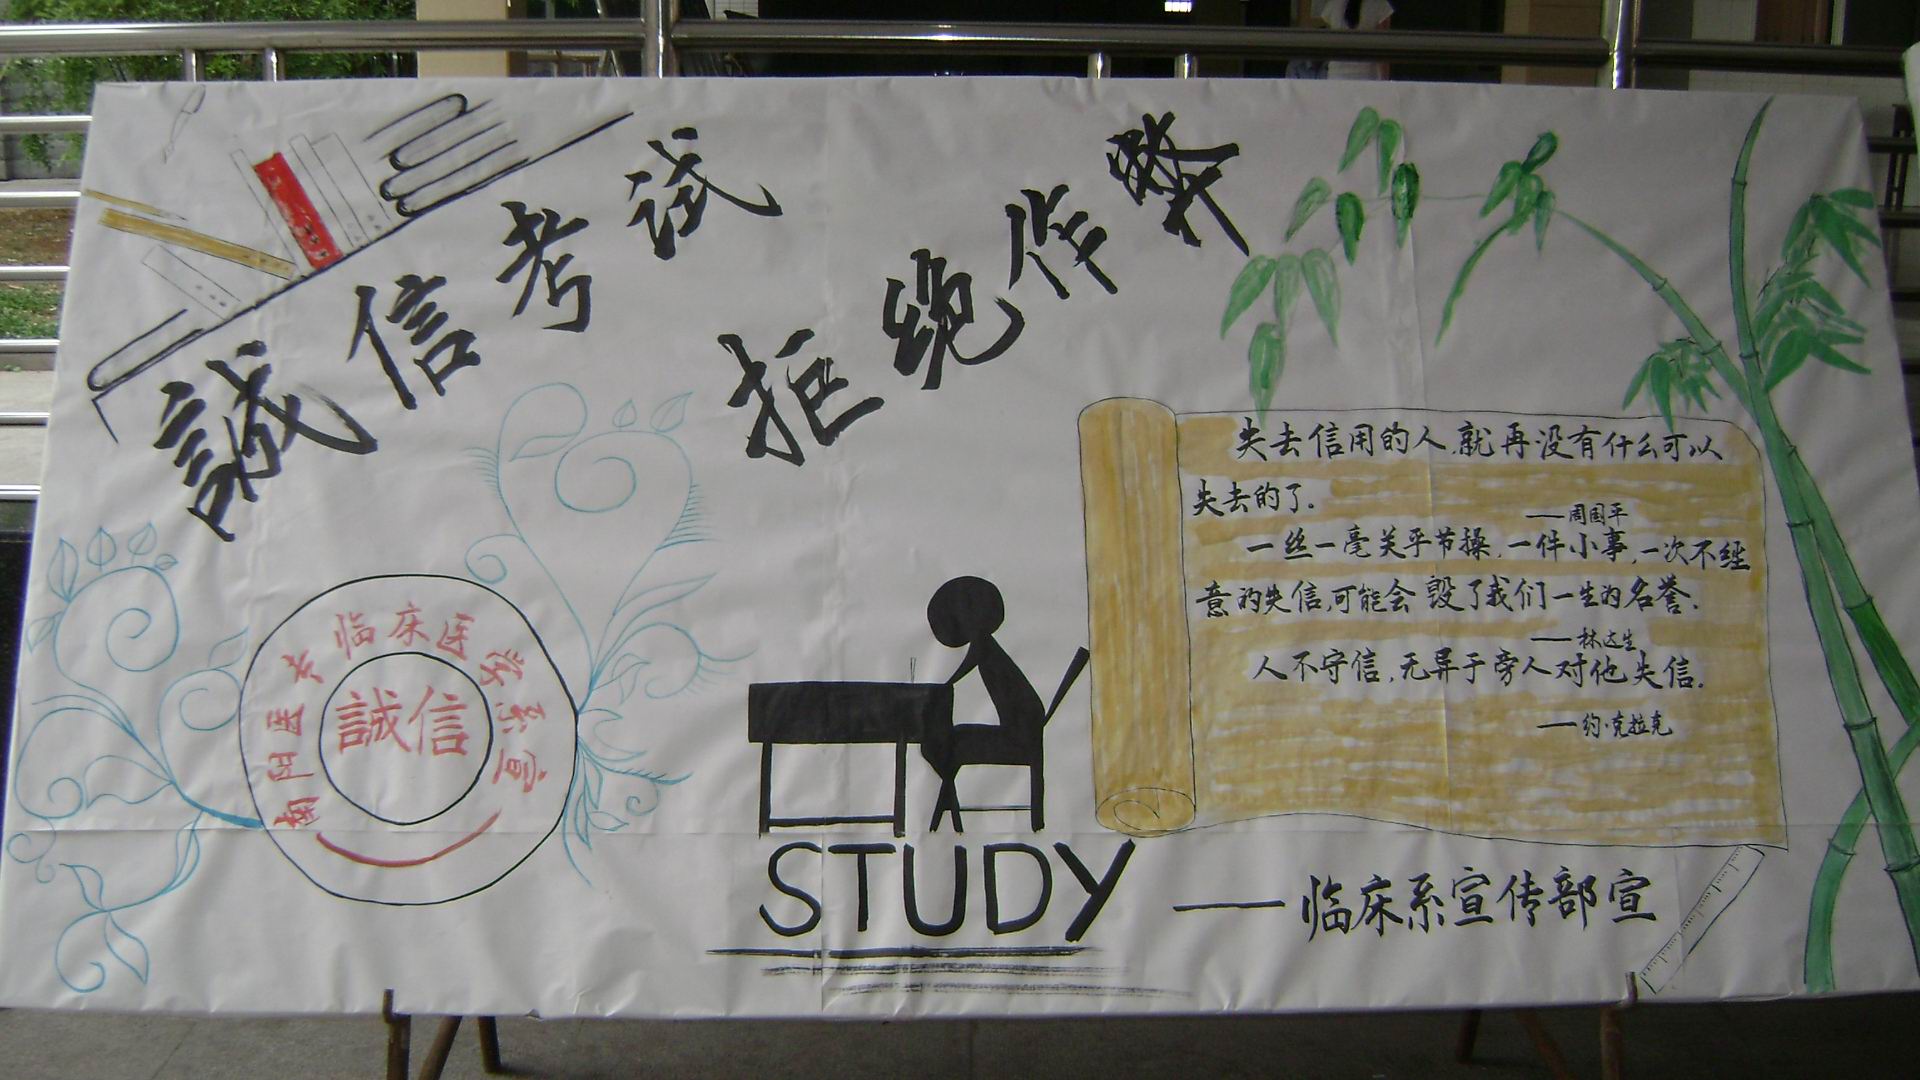 誠信考试
拒绝作弊
阳医 临床医学系宣
誠信
失去信用的人,就再没有什么可以
失去的了.
——周国平
一丝一毫关乎节操,一件小事,一次不经
意的失信,可能会毁了我们一生的名誉.
——林达生
人不守信,无异于旁人对他失信.
——约·克拉克
STUDY
——临床系宣传部宣